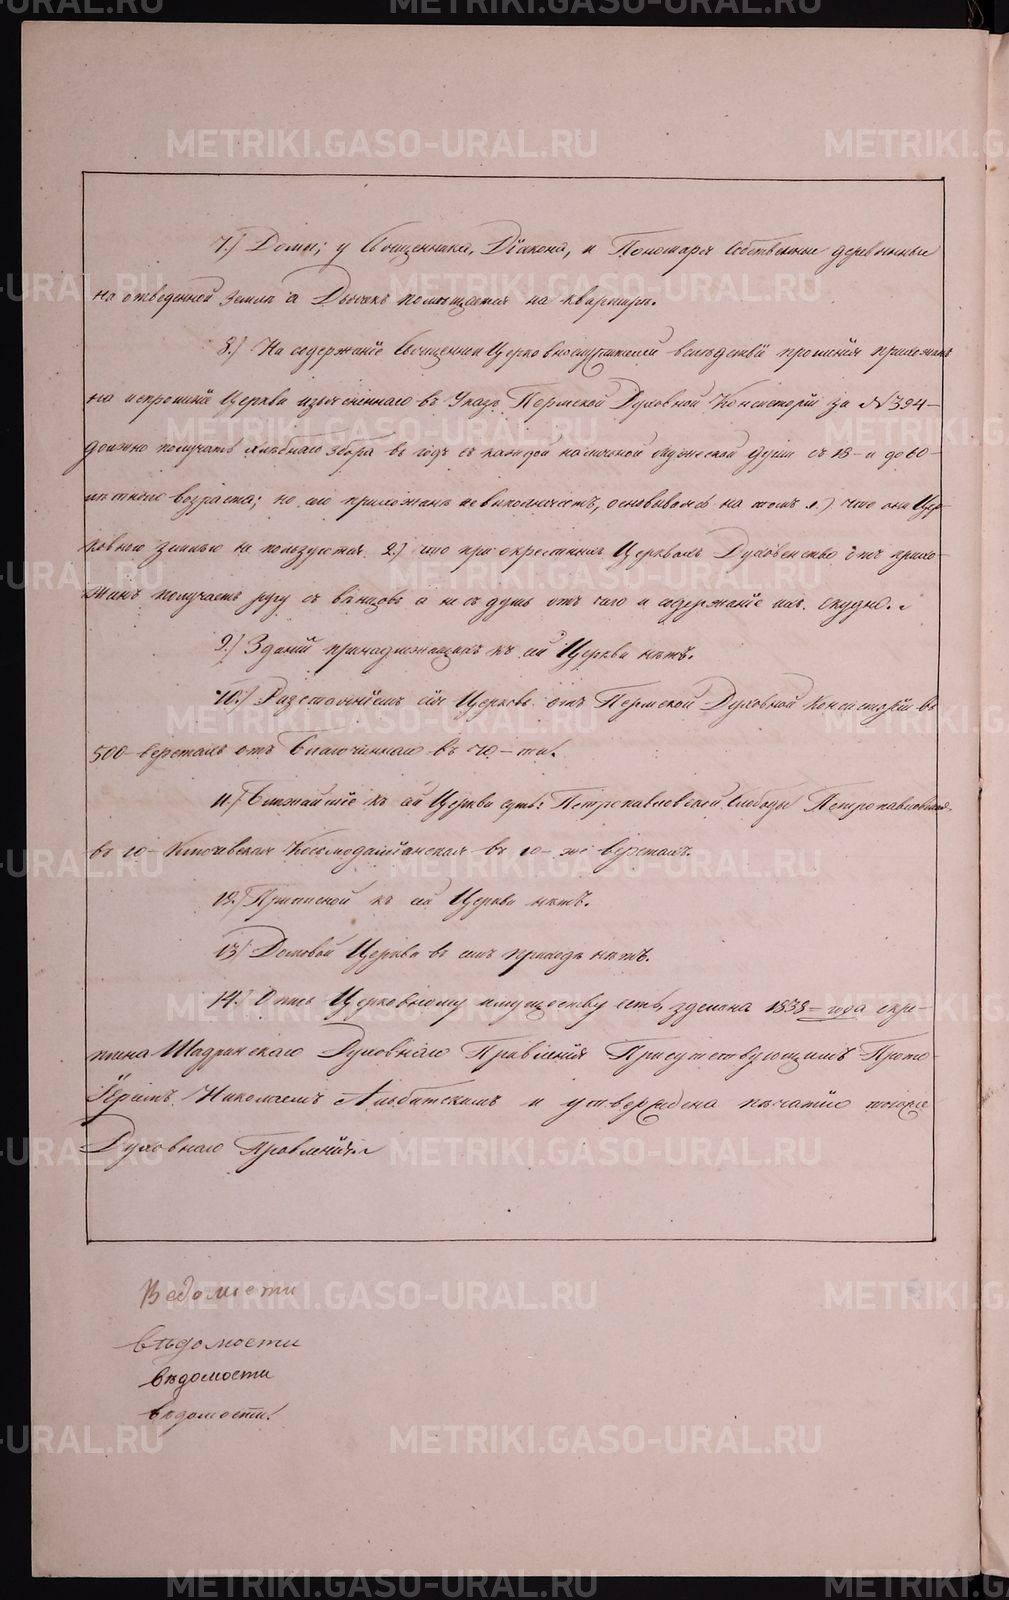 7.) Домы; у Священника, Діакона, и Пономаря собственные деревянные
на отведенной землѣ а Дьячекъ помѣщается на квартирѣ.
8.) На содержаніе Священноцерковнослужители вслѣдствіи прошенія прихожанъ
на устроеніе Церкви изъясненнаго въ Указѣ Пермской Духовной Консисторіи за № 394
должно получать хлѣбнаго збора въ годъ съ каждой наличной мужеской души съ 18- и до 60-
лѣтняго возраста; но сего прихожане не выполняютъ, основываясь на томъ 1.) что они Цер-
ковною землею не пользуются. 2.) что при окрестныхъ Церквахъ Духовенство отъ прихо-
жанъ получаетъ ругу съ вѣнцовъ а не съ душъ отъ чего и содержаніе ихъ скудно.
9.) Зданій принадлежащихъ къ сей Церкви нѣтъ.
10.) Разстояніемъ сія Церковь отъ Пермской Духовной Консисторіи въ
500-верстахъ отъ Благочиннаго въ 40-ти.
11.) Ближайшіе къ сей Церкви суть: Петропавловской Слободы Петропавловская
въ 10- Ключевская Косьмодаміанская въ 10- же верстахъ.
12.) Приписной къ сей Церкви нѣтъ.
13) Домовой Церкви въ семъ приходѣ нѣтъ.
14.) Опись Церковному имуществу есть, здѣлана 1838- года скрѣ-
плена Шадринскаго Духовнаго Правленія Присутствующимъ Прото-
Іереемъ Николаемъ и утверждена печатью того же
Духовнаго Правленія.
Ведомости
вѣдомости
вѣдомости
вѣдомости
METRIKI.GASO-URAL.RU